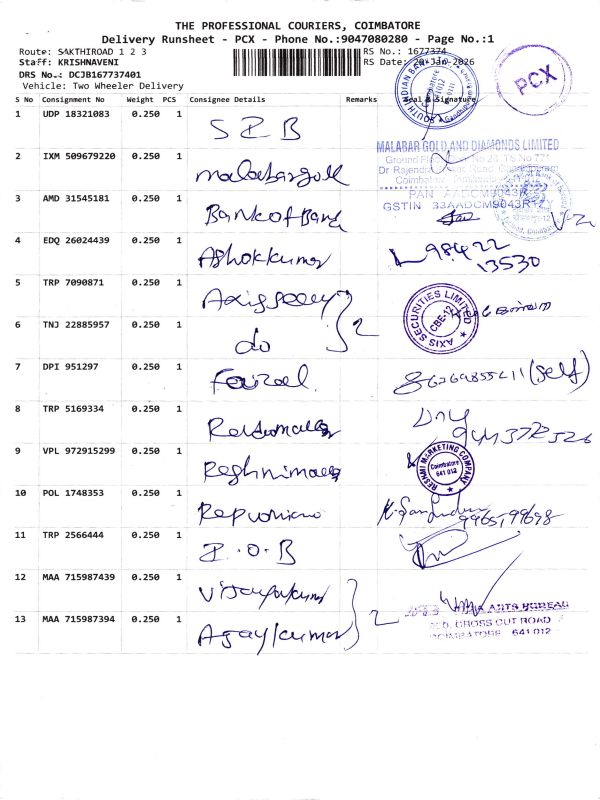 THE PROFESSIONAL COURIERS, COIMBATORE
Delivery Runsheet - PCX - Phone No.:9047080280 - Page No.:1
Route: SAKTHIROAD 1 2 3
RS No.: 1677374
Staff: KRISHNAVENI
RS Date: 20-Jan-2026
DRS No.: DCJB167737401
Vehicle: Two Wheeler Delivery
PCX
S No Consignment No Weight PCS Consignee Details Remarks Seal & Signature
1 UDP 18321083 0.250 1
MALABAR GOLD AND DIAMONDS LIMITED
2 IXM 509679220 0.250 1 malabargold
PAN AADCM9043R
GSTIN 33AADCM9043R1ZY
3 AMD 31545181 0.250 1 Bank of Baroda
4 EDQ 26024439 0.250 1 Ashokkumar 98422
13530
5 TRP 7090871 0.250 1
AXIS SECURITIES LIMITED
CBE-12
6 TNJ 22885957 0.250 1 do 2
7 DPI 951297 0.250 1 Faizal (Self)
8 TRP 5169334 0.250 1
9 VPL 972915299 0.250 1
RESHMI MARKETING COMPANY
Coimbatore
641 012
10 POL 1748353 0.250 1
11 TRP 2566444 0.250 1 I.O.B
12 MAA 715987439 0.250 1 Vijayakumar
ARTS BUREAU
CROSS CUT ROAD
COIMBATORE 641 012
13 MAA 715987394 0.250 1 Ajaykumar 2